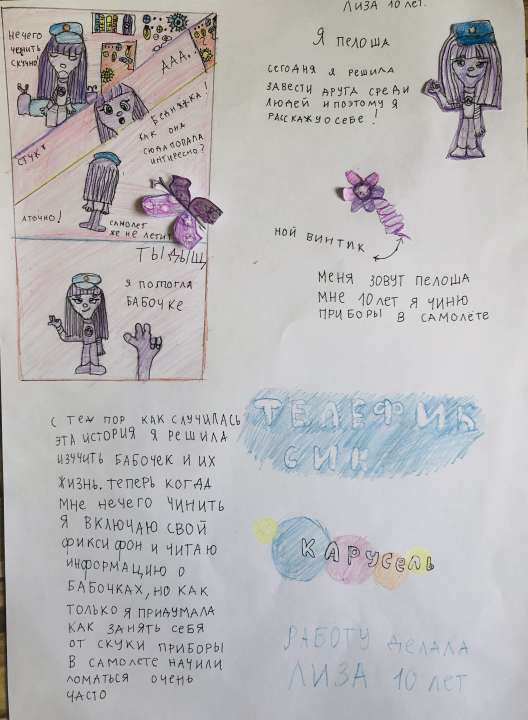 ЛИЗА 10 ЛЕТ.
НЕЧЕГО
ЧЕНИТЬ
СКУЧНО!
ААА..
БЕДНЯЖКА!
КАК ОНА
СЮДА ПОПАЛА
ИНТИРЕСНО?
СТУК*
АТОЧНО!
САМОЛЕТ
ЖЕ НЕ ЛЕТИТ
ТЫДЫЩ
Я ПОМОГЛА
БАБОЧКЕ
Я ПЕЛОША
СЕГОДНЯ Я РЕШИЛА
ЗАВЕСТИ ДРУГА СРЕДИ
ЛЮДЕЙ И ПОЭТОМУ Я
РАССКАЖУ О СЕБЕ!
МОЙ ВИНТИК
МЕНЯ ЗОВУТ ПЕЛОША
МНЕ 10 ЛЕТ Я ЧИНЮ
ПРИБОРЫ В САМОЛЁТЕ
С ТЕХ ПОР КАК СЛУЧИЛАСЬ
ЭТА ИСТОРИЯ Я РЕШИЛА
ИЗУЧИТЬ БАБОЧЕК И ИХ
ЖИЗНЬ. ТЕПЕРЬ КОГДА
МНЕ НЕЧЕГО ЧИНИТЬ
Я ВКЛЮЧАЮ СВОЙ
ФИКСИФОН И ЧИТАЮ
ИНФОРМАЦИЮ О
БАБОЧКАХ, НО КАК
ТОЛЬКО Я ПРИДУМАЛА
КАК ЗАНЯТЬ СЕБЯ
ОТ СКУКИ ПРИБОРЫ
В САМОЛЕТЕ НАЧИЛИ
ЛОМАТЬСЯ ОЧЕНЬ
ЧАСТО
ТЕЛЕФИК
СИК
КАРУСЕЛЬ
РАБОТУ ДЕЛАЛА
ЛИЗА 10 ЛЕТ